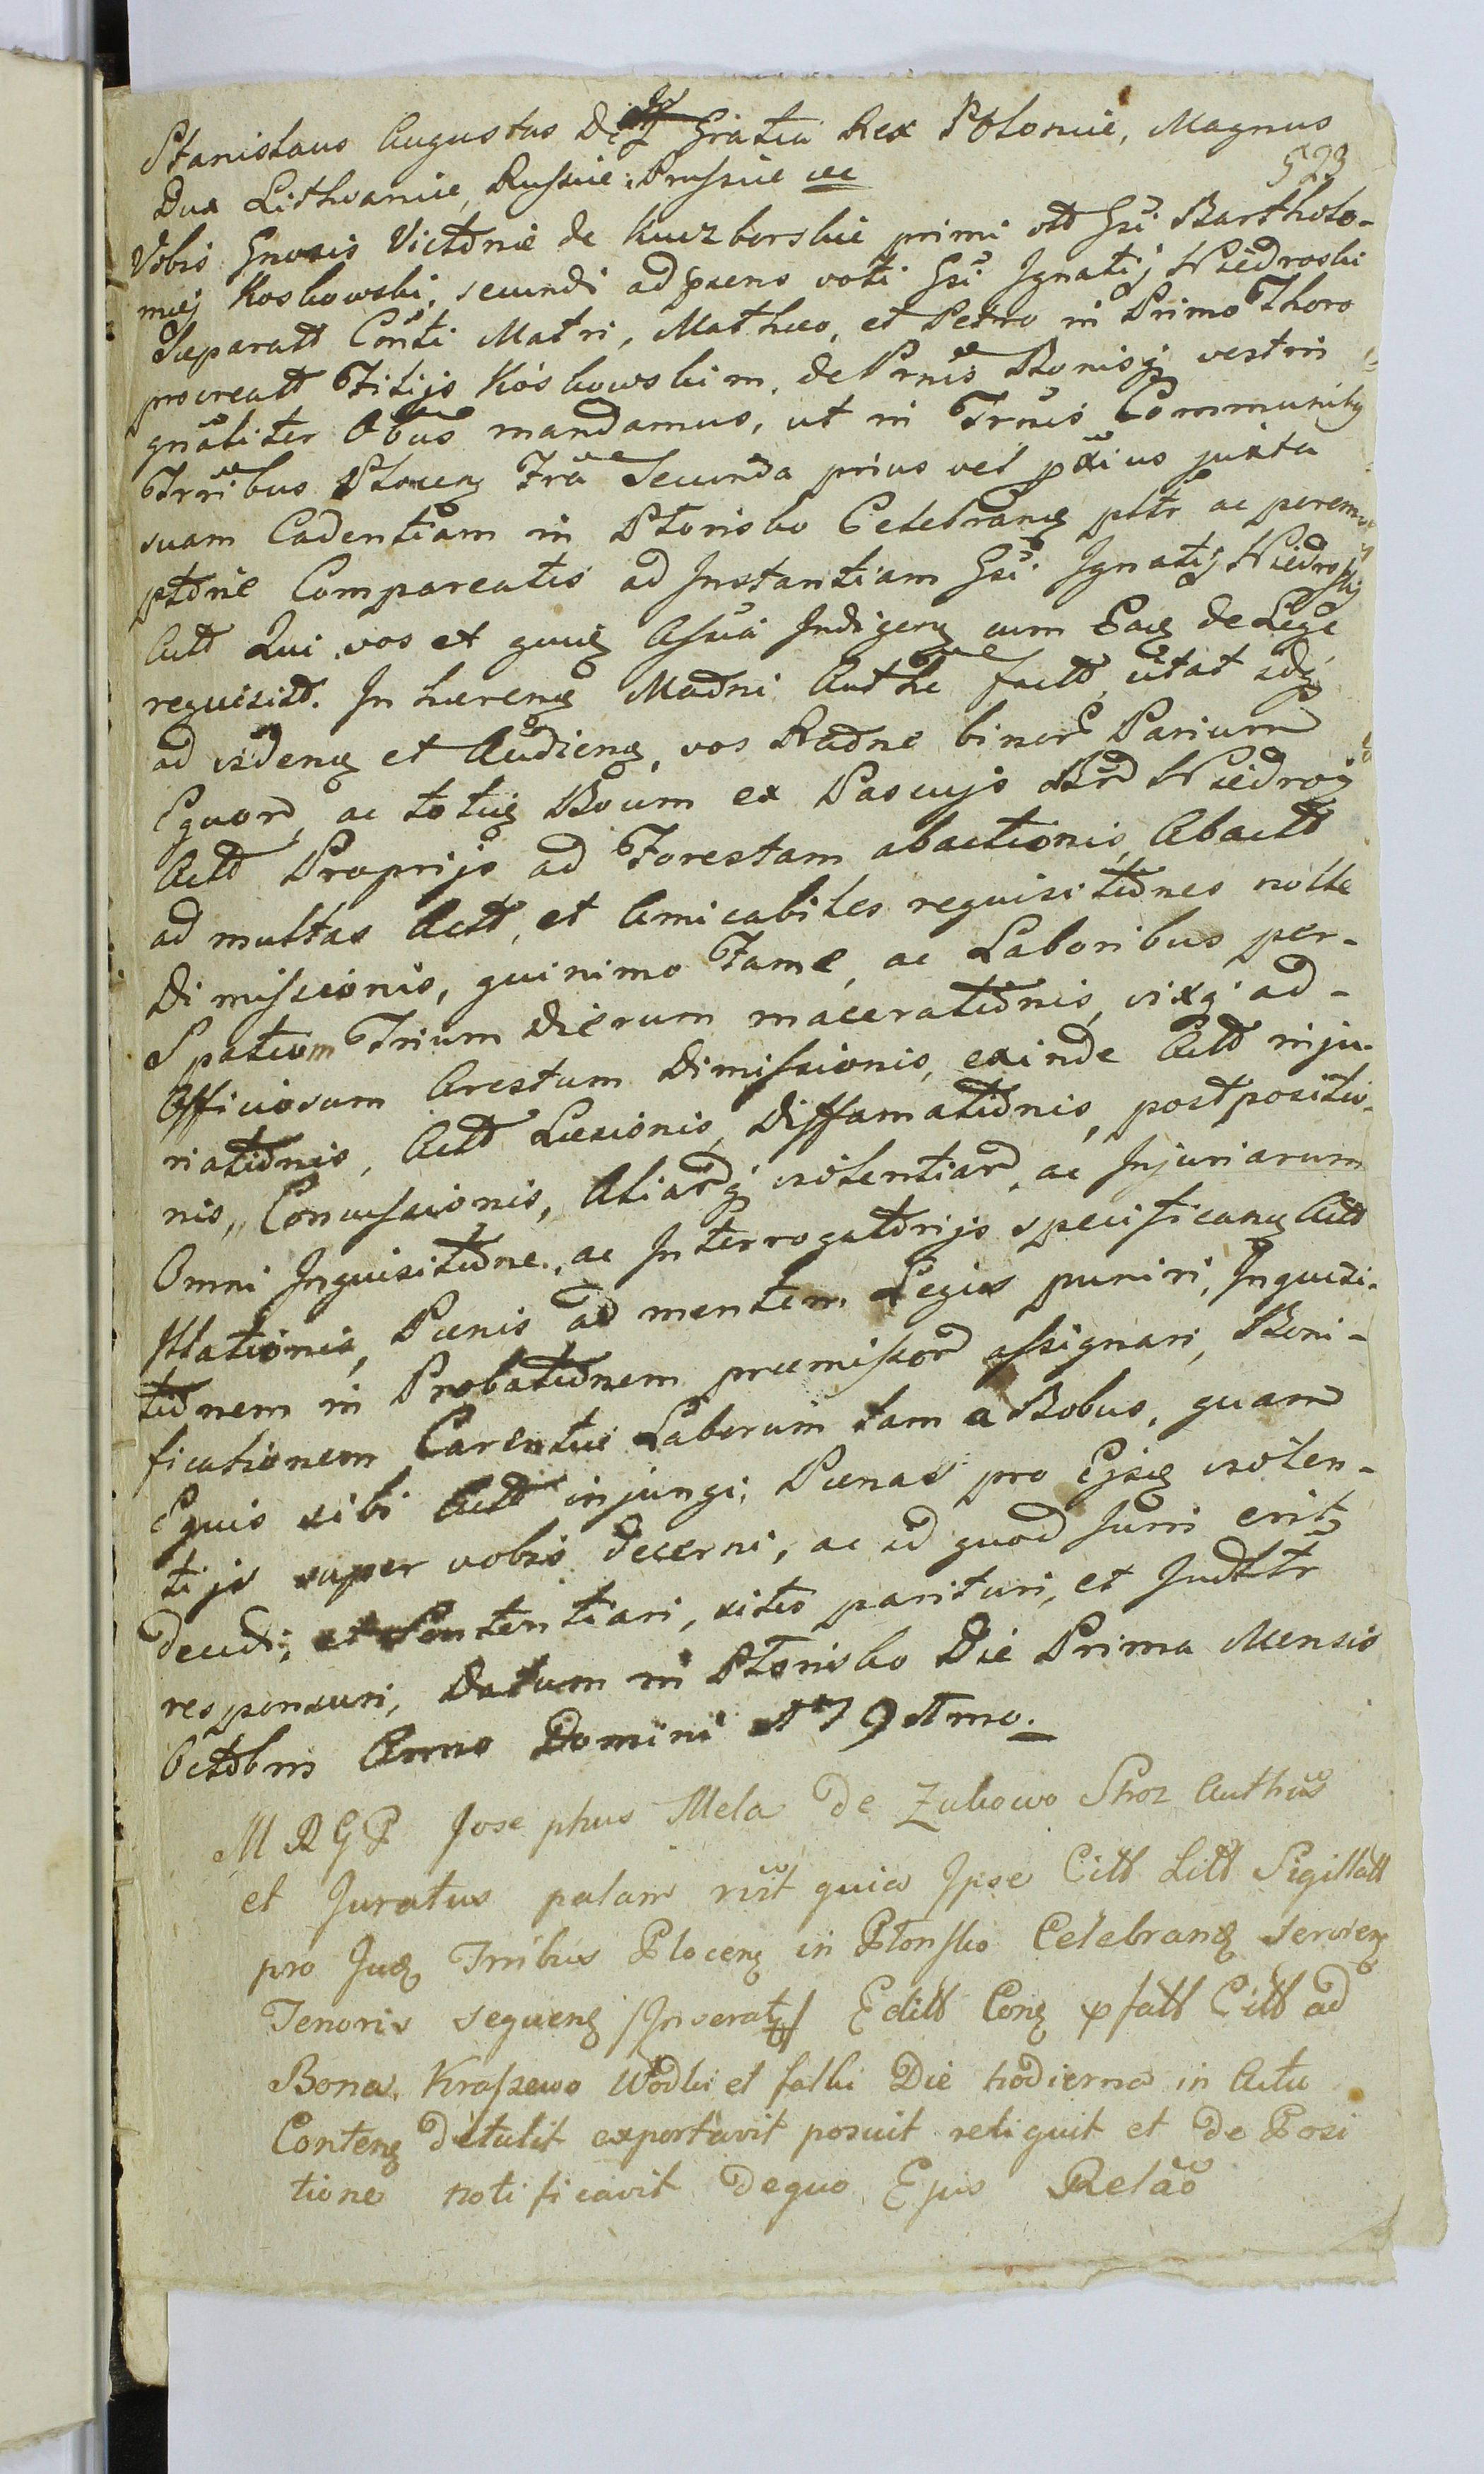 Stanislaus Augustus Dei Gratia Rex Poloniæ, Magnus
523
Dux Lithvaniæ, Russiæ, Prussiæ etc
Vobis Gnosis Victoriæ de Kuczborskie primi vott Gsi Bartholo-
mej Koskowski, secundi adpræns voti Gsi Ignatij Niedroski
Separatt Conti Matri, Mathæo, et Petro in Primo Thoro
procreatt Filijs Koskowskim, de Prnis Bonisq vestris
gnaliter Obus mandamus, ut in Trnis Communibq
Trribus Plocenq Fra Secunda prius vel pxius juxta
suam Cadentiam in Płonisko Celebranq pltr ac perem-
ptorie Compareatis ad Instantiam Gsi Ignatij Niedroskij
Actt Qui vos et gnuq Assia Indigenq cum Eaq de Lege
requisitt. In hærenq Madni Authe factt, citat idq
ad videnq et Audienq, vos Radne binor Parium
Equor, ac totuq Boum ex Pascujs Niedroż
Actt Proprijs ad Forestam abactionis, Abactt
ad multas Actt, et Amicabiles requisitiones nolle
Dimissionis, quinimo Fame, ac Laboribus per-
Spatium Trium Dierum maceratidnis, vixq ad-
Officiosum Arestum Dimissionis, exinde Actt inju-
riatidnis, Actt Læsionis, Diffamatidnis, postpositio-
nis, Concussionis, Aliarq violentiar, ac Injuriarum
Omni Inquisitidne, ac Interrogatorijs specificanq Actt
Illationis, Pœnis ad mentem Legis puniri, Inquisi-
tidnem in Probatidnem præmissor assignari, Boni-
ficationem Carentiæ Laborum tam a Bobus, quam
Equis sibi Actt injungi, Pœnas pro Ejsq violen-
tijs super vobis decerni, ac id quod Juris erit
decidi, et Sententiari, sitis parituri, et Judltr
responsuri, Datum in Płonisko Die Prima Mensis
Octobris Anno Domini 1791mo.
M R G P Josephus Mela de Zukowo Shoz Authus
et Juratus palam rvit quia Ipse Citt Litt Sigillatt
pro Judq Trribus Plocenq in Płonsko Celebranq servienq
Tenoris sequenq /Inseratq/ Editt Conq pfatt Citt ad
Bona Kraszewo Wodki et falki Die hodierna in Actu
Contenq Detulit exportavit posuit reliquit et de Posi
tione notificavit Dequo Ejus Relao